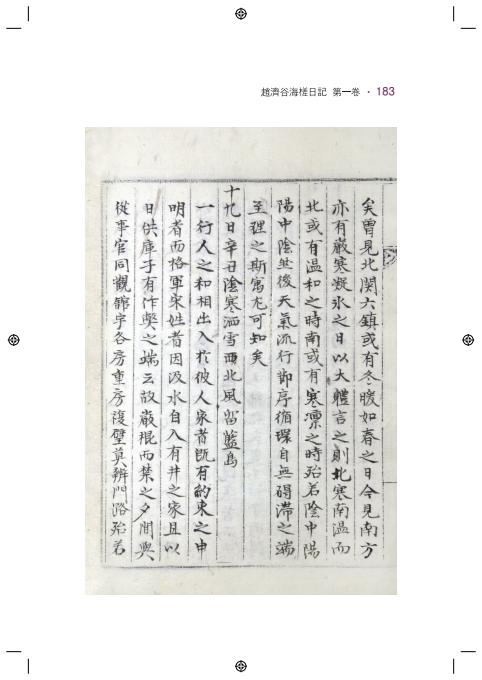 趙濟谷海槎日記 第一巻 · 183
矣曾見北関六鎮或有冬暖如春之日今見南方
亦有巌寒凝氷之日以大體言之則北寒南温而
北或有温和之時南或有寒凛之時殆若陰中陽
陽中陰然後天氣流行節序循環自無碍滞之端
至理之斯寓尤可知矣
十九日辛丑陰寒洒雪西北風留藍島
一行人之和相出入於彼人家者既有約束之申
明者而格軍宋姓者因汲水自入有井之家且以
日供庫子有作弊之端云故嚴棍而禁之夕間與
從事官同觀舘宇各房重房複壁莫辨門路殆若